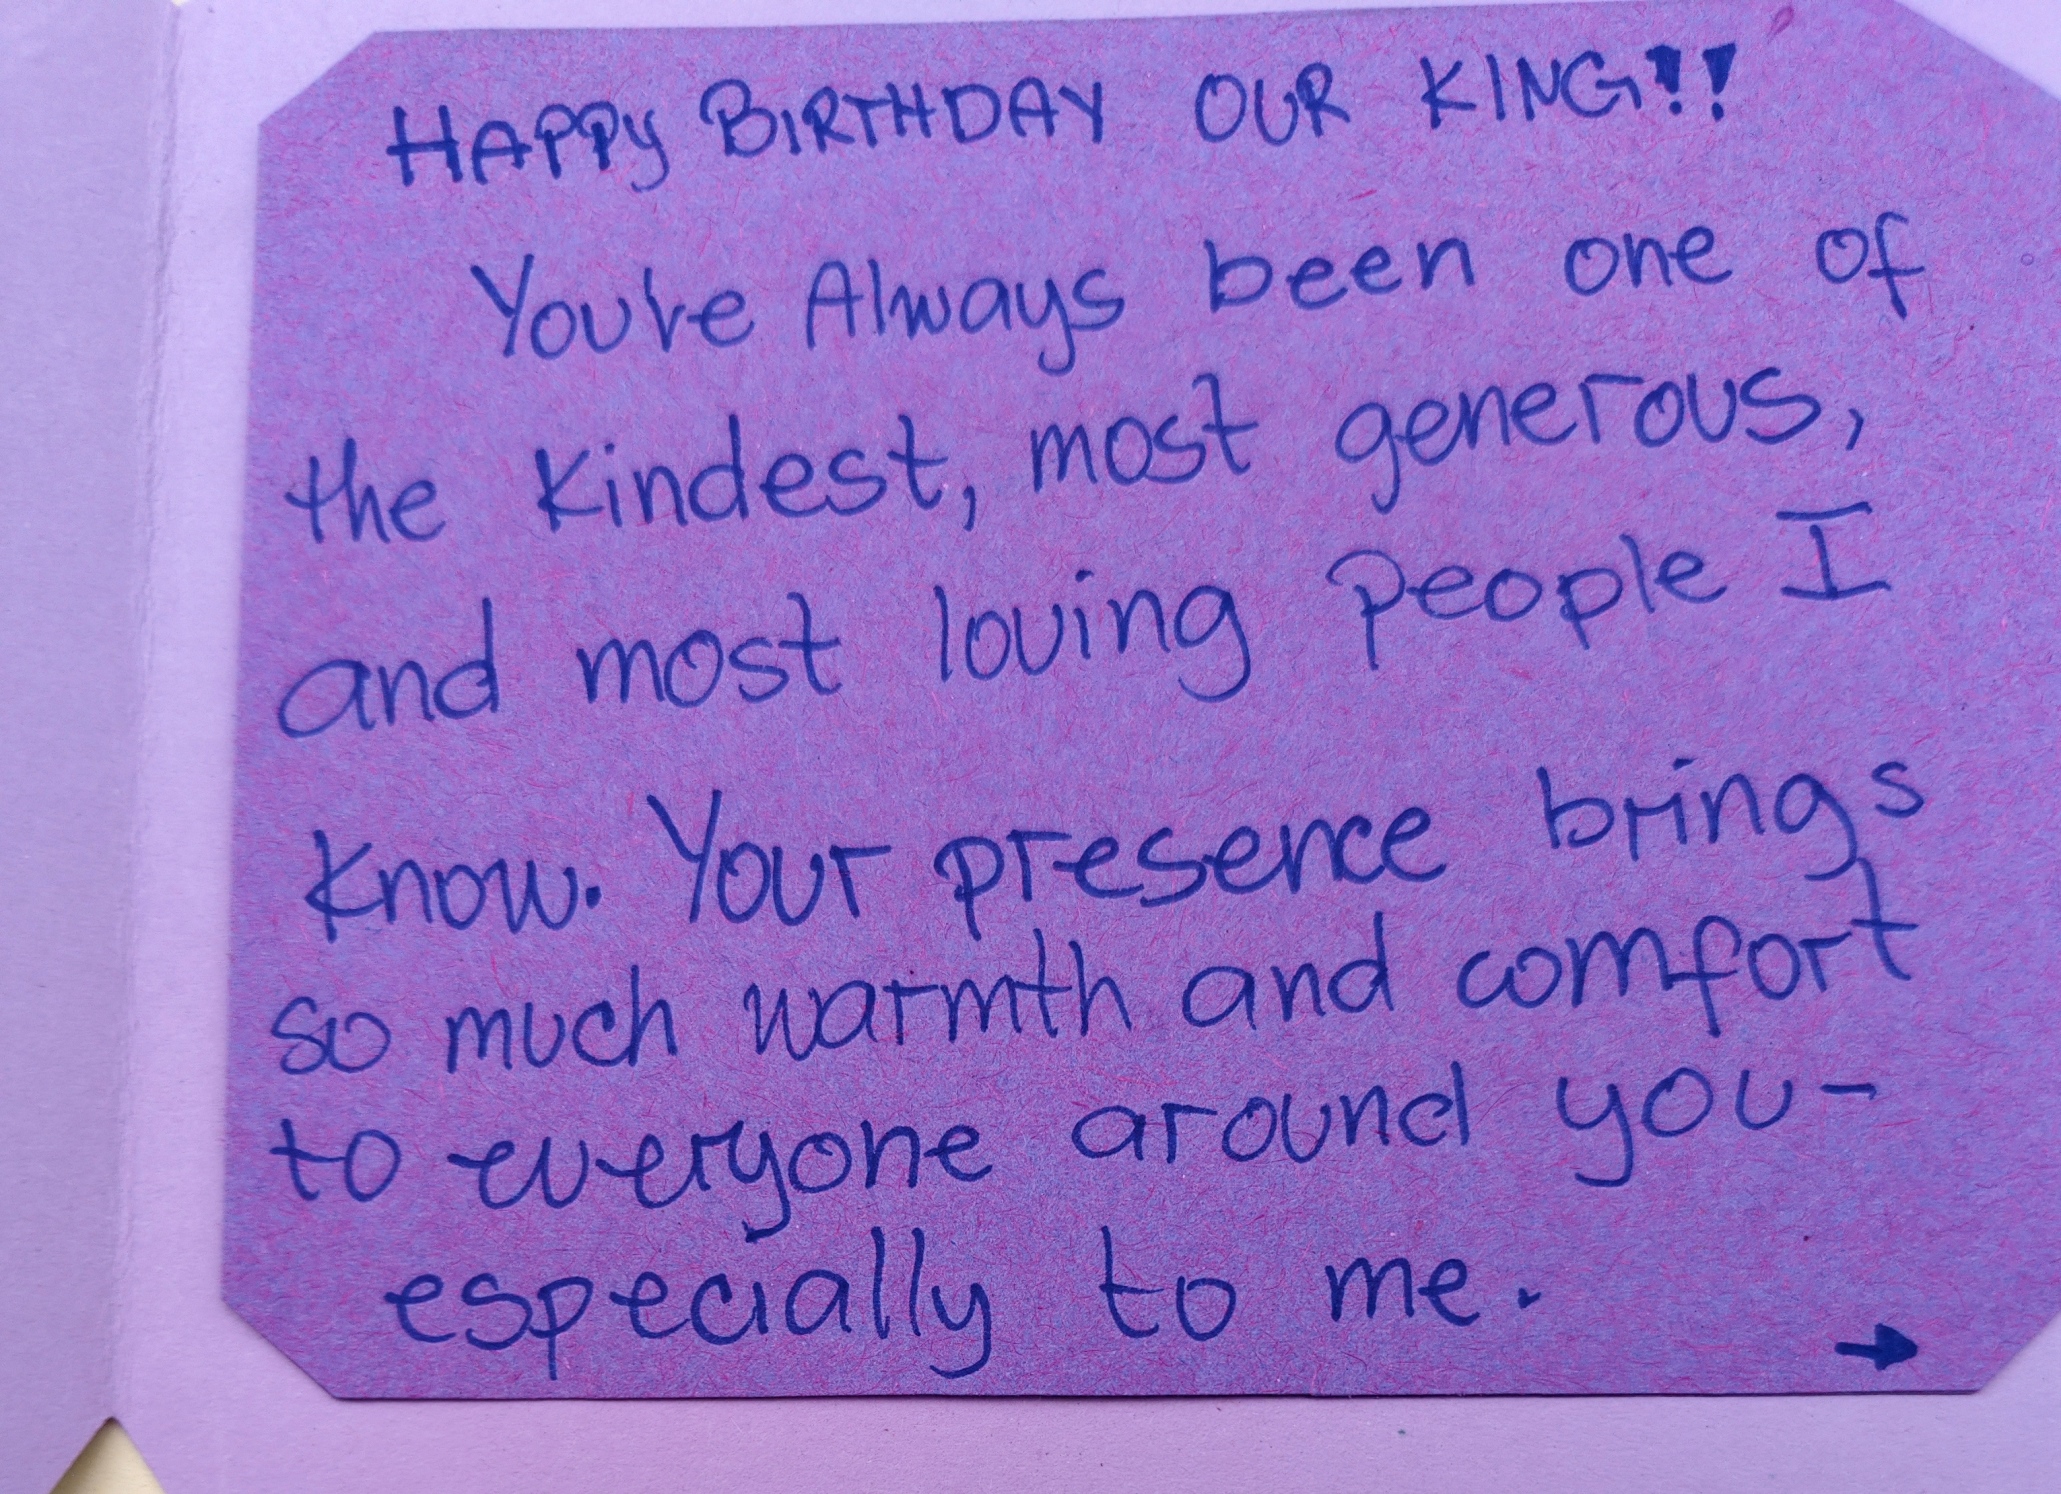 HAPPY BIRTHDAY OUR KING!!
You've Always been one of
the kindest, most generous,
and most loving people I
know. Your presence brings
so much warmth and comfort
to everyone around you-
especially to me.
→